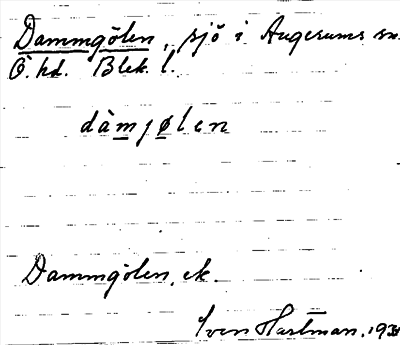 Dammgölen, sjö i Augerums sn.
Ö. hd. Blek. l.
dàmjølen
Dammgölen, ek.
Sven Hartman, 193